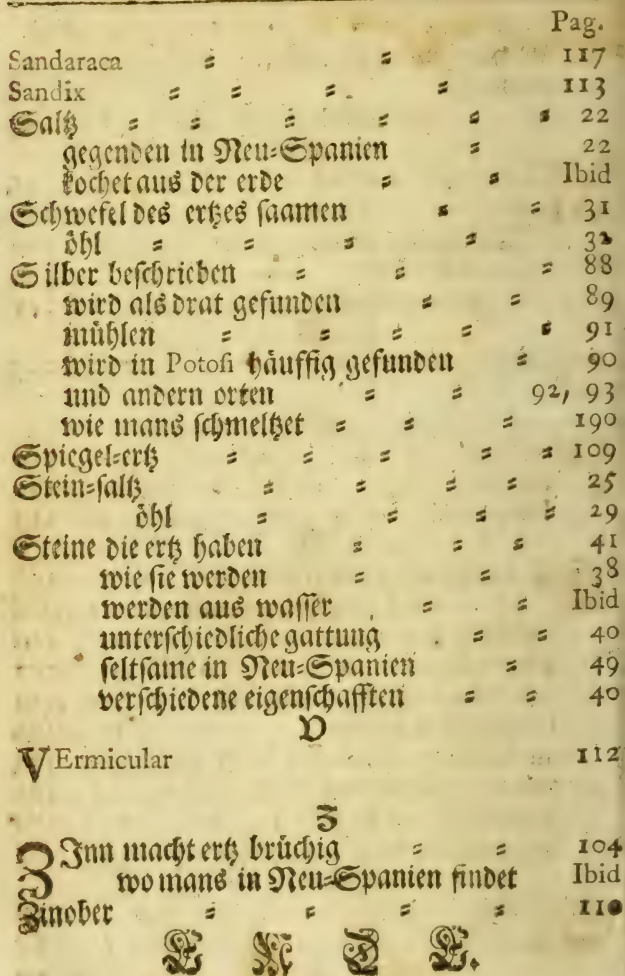 Pag.
Sandaraca = = 117
Sandix = = = = 113
Saltz = = = = = = 22
gegenden in Neu=Spanien = 22
kochet aus der erde = = Ibid
Schwefel des ertzes saamen = = 31
öhl = = = = 32
Silber beschrieben = = = 88
wird als drat gefunden = = 89
mühlen = = = = = 91
wird in Potosi häuffig gefunden = 90
und andern orten = = 92, 93
wie mans schmeltzet = = = 190
Spiegel=ertz = = = = = 109
Stein=saltz = = = = 25
öhl = = = = 29
Steine die ertz haben = = = 41
wie sie werden = = 38
werden aus wasser = = Ibid
unterschiedliche gattung = = 40
seltsame in Neu=Spanien = 49
verschiedene eigenschafften = = 40
V
VErmicular 112
Z
ZJnn macht ertz brüchig = = 104
wo mans in Neu=Spanien findet Ibid
Zinober = = = = 110
ENDE.